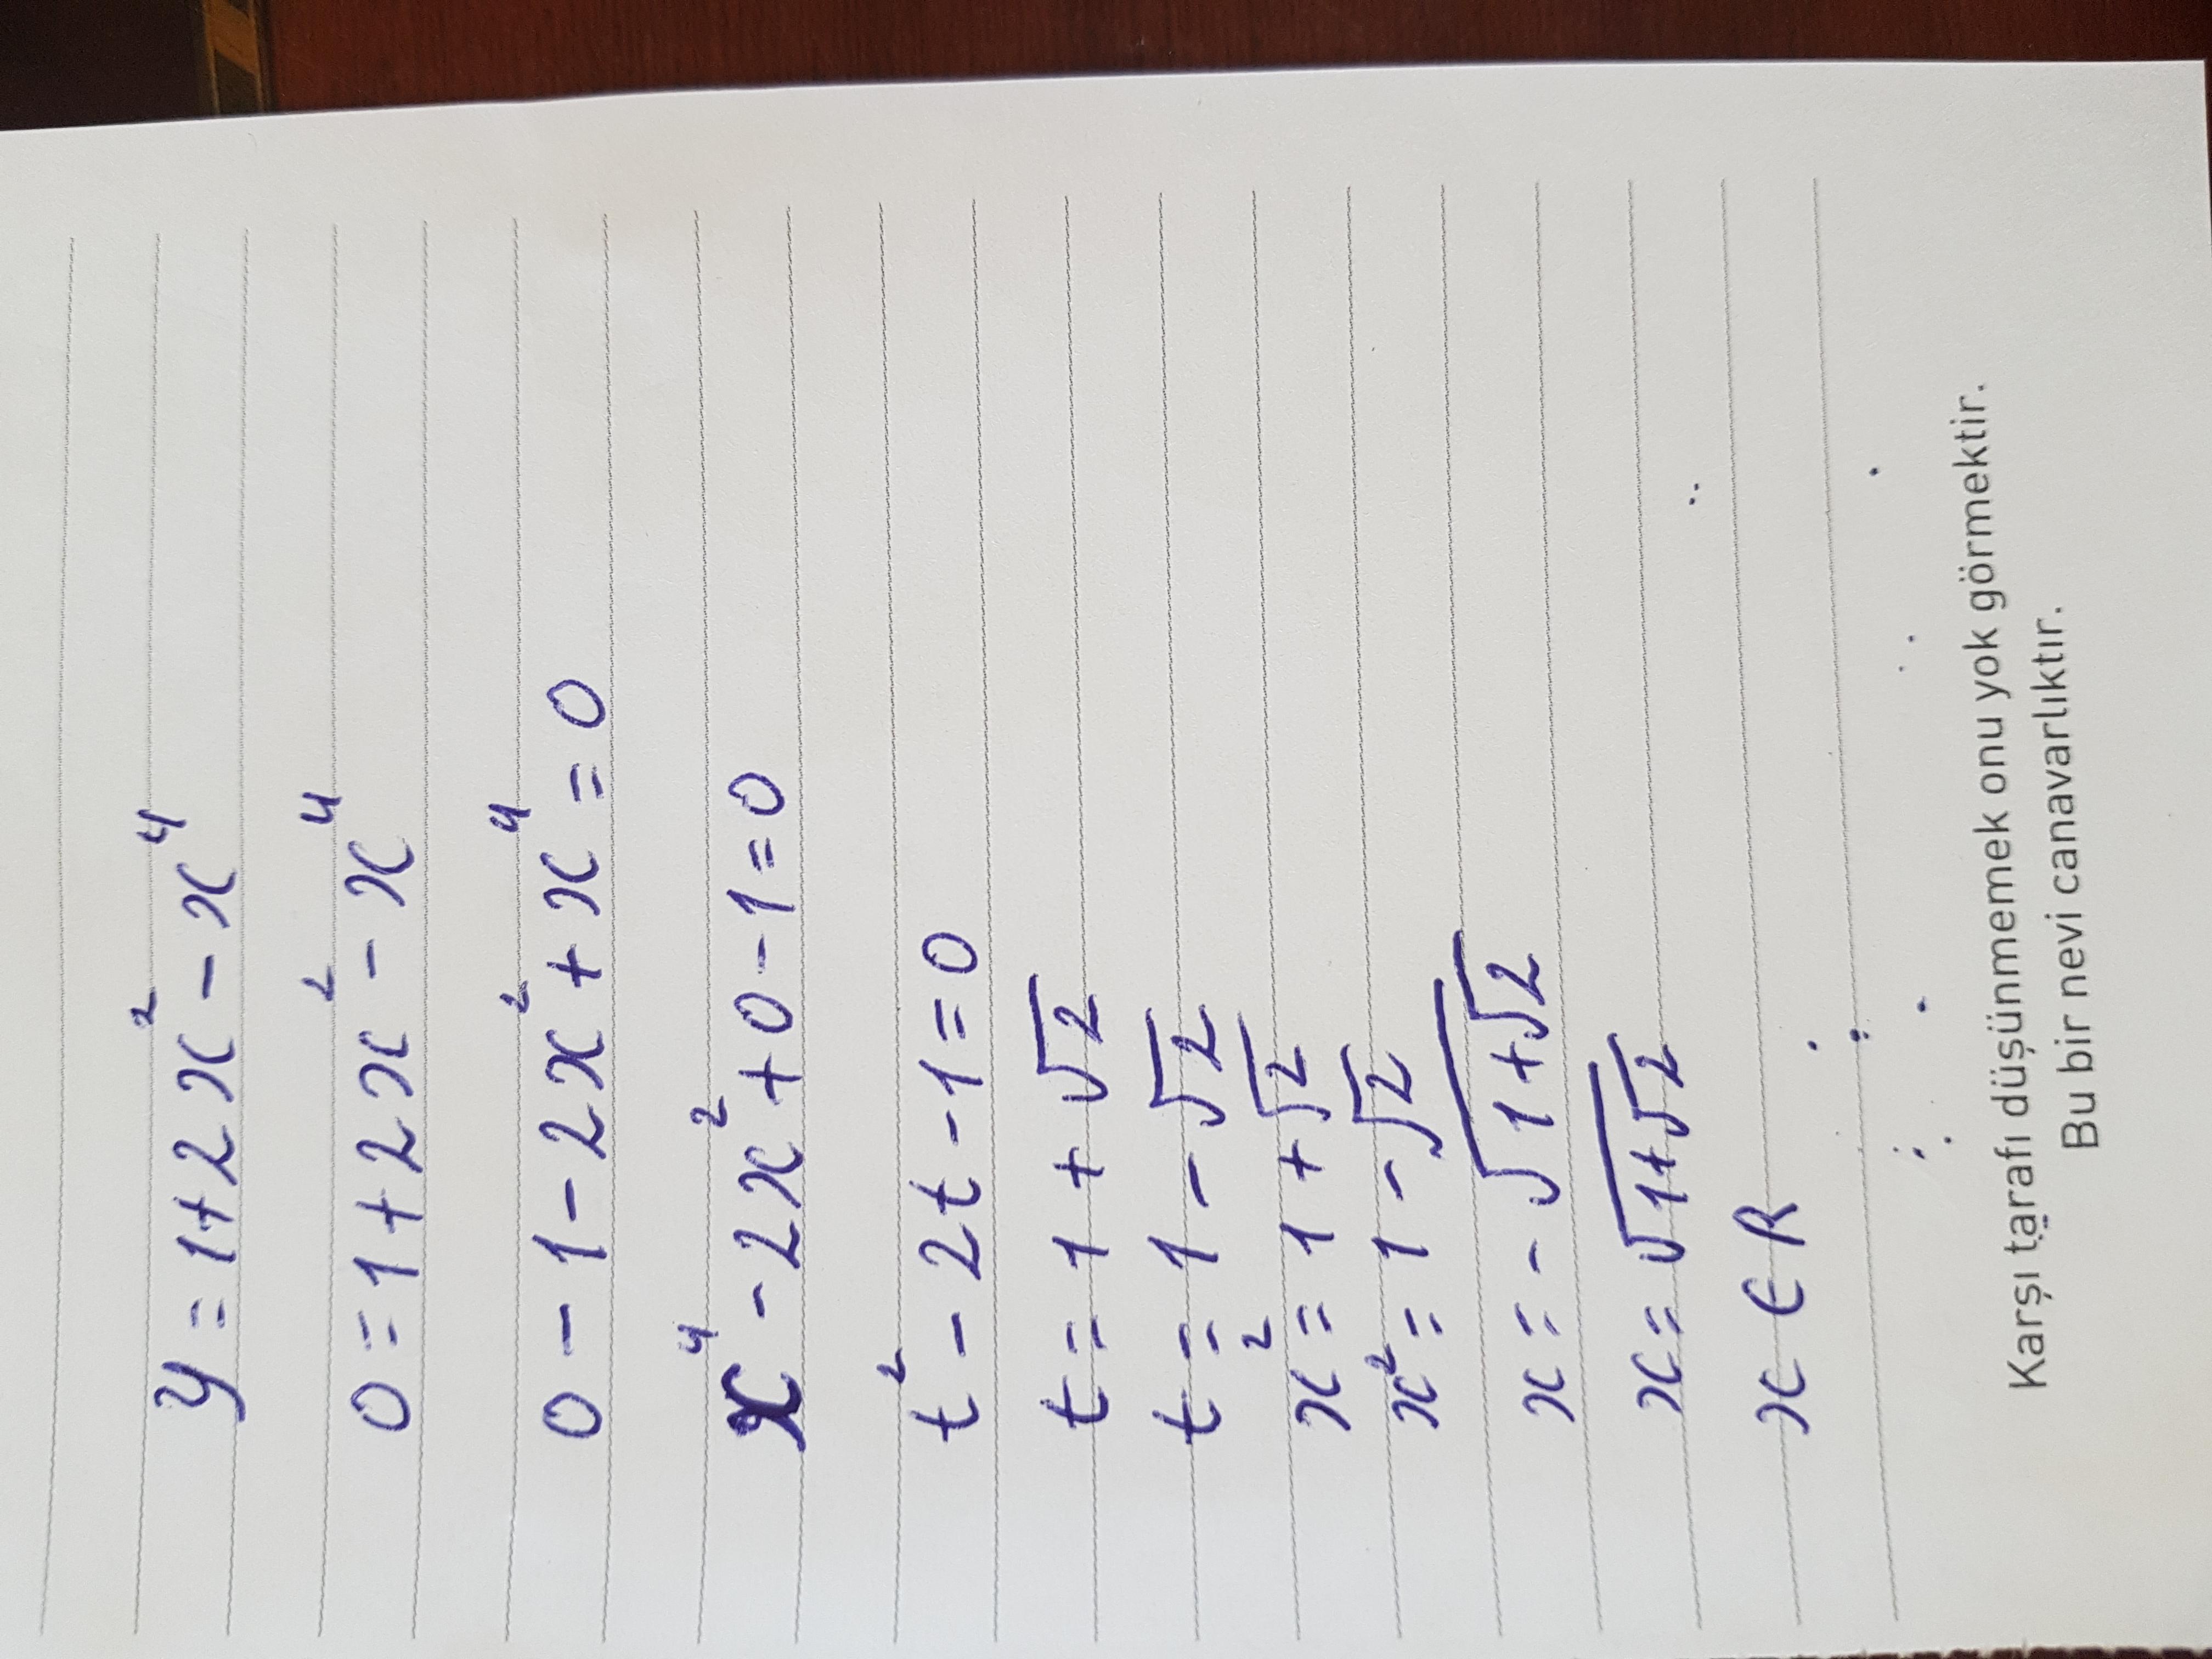 y = 1 + 2x² - x⁴
0 = 1 + 2x² - x⁴
0 - 1 - 2x² + x⁴ = 0
x⁴ - 2x² + 0 - 1 = 0
t² - 2t - 1 = 0
t = 1 + √2
t = 1 - √2
x² = 1 + √2
x² = 1 - √2
x = - √(1 + √2)
x = √(1 + √2)
x ∈ R
Karşı tarafı düşünmemek onu yok görmektir.
Bu bir nevi canavarlıktır.